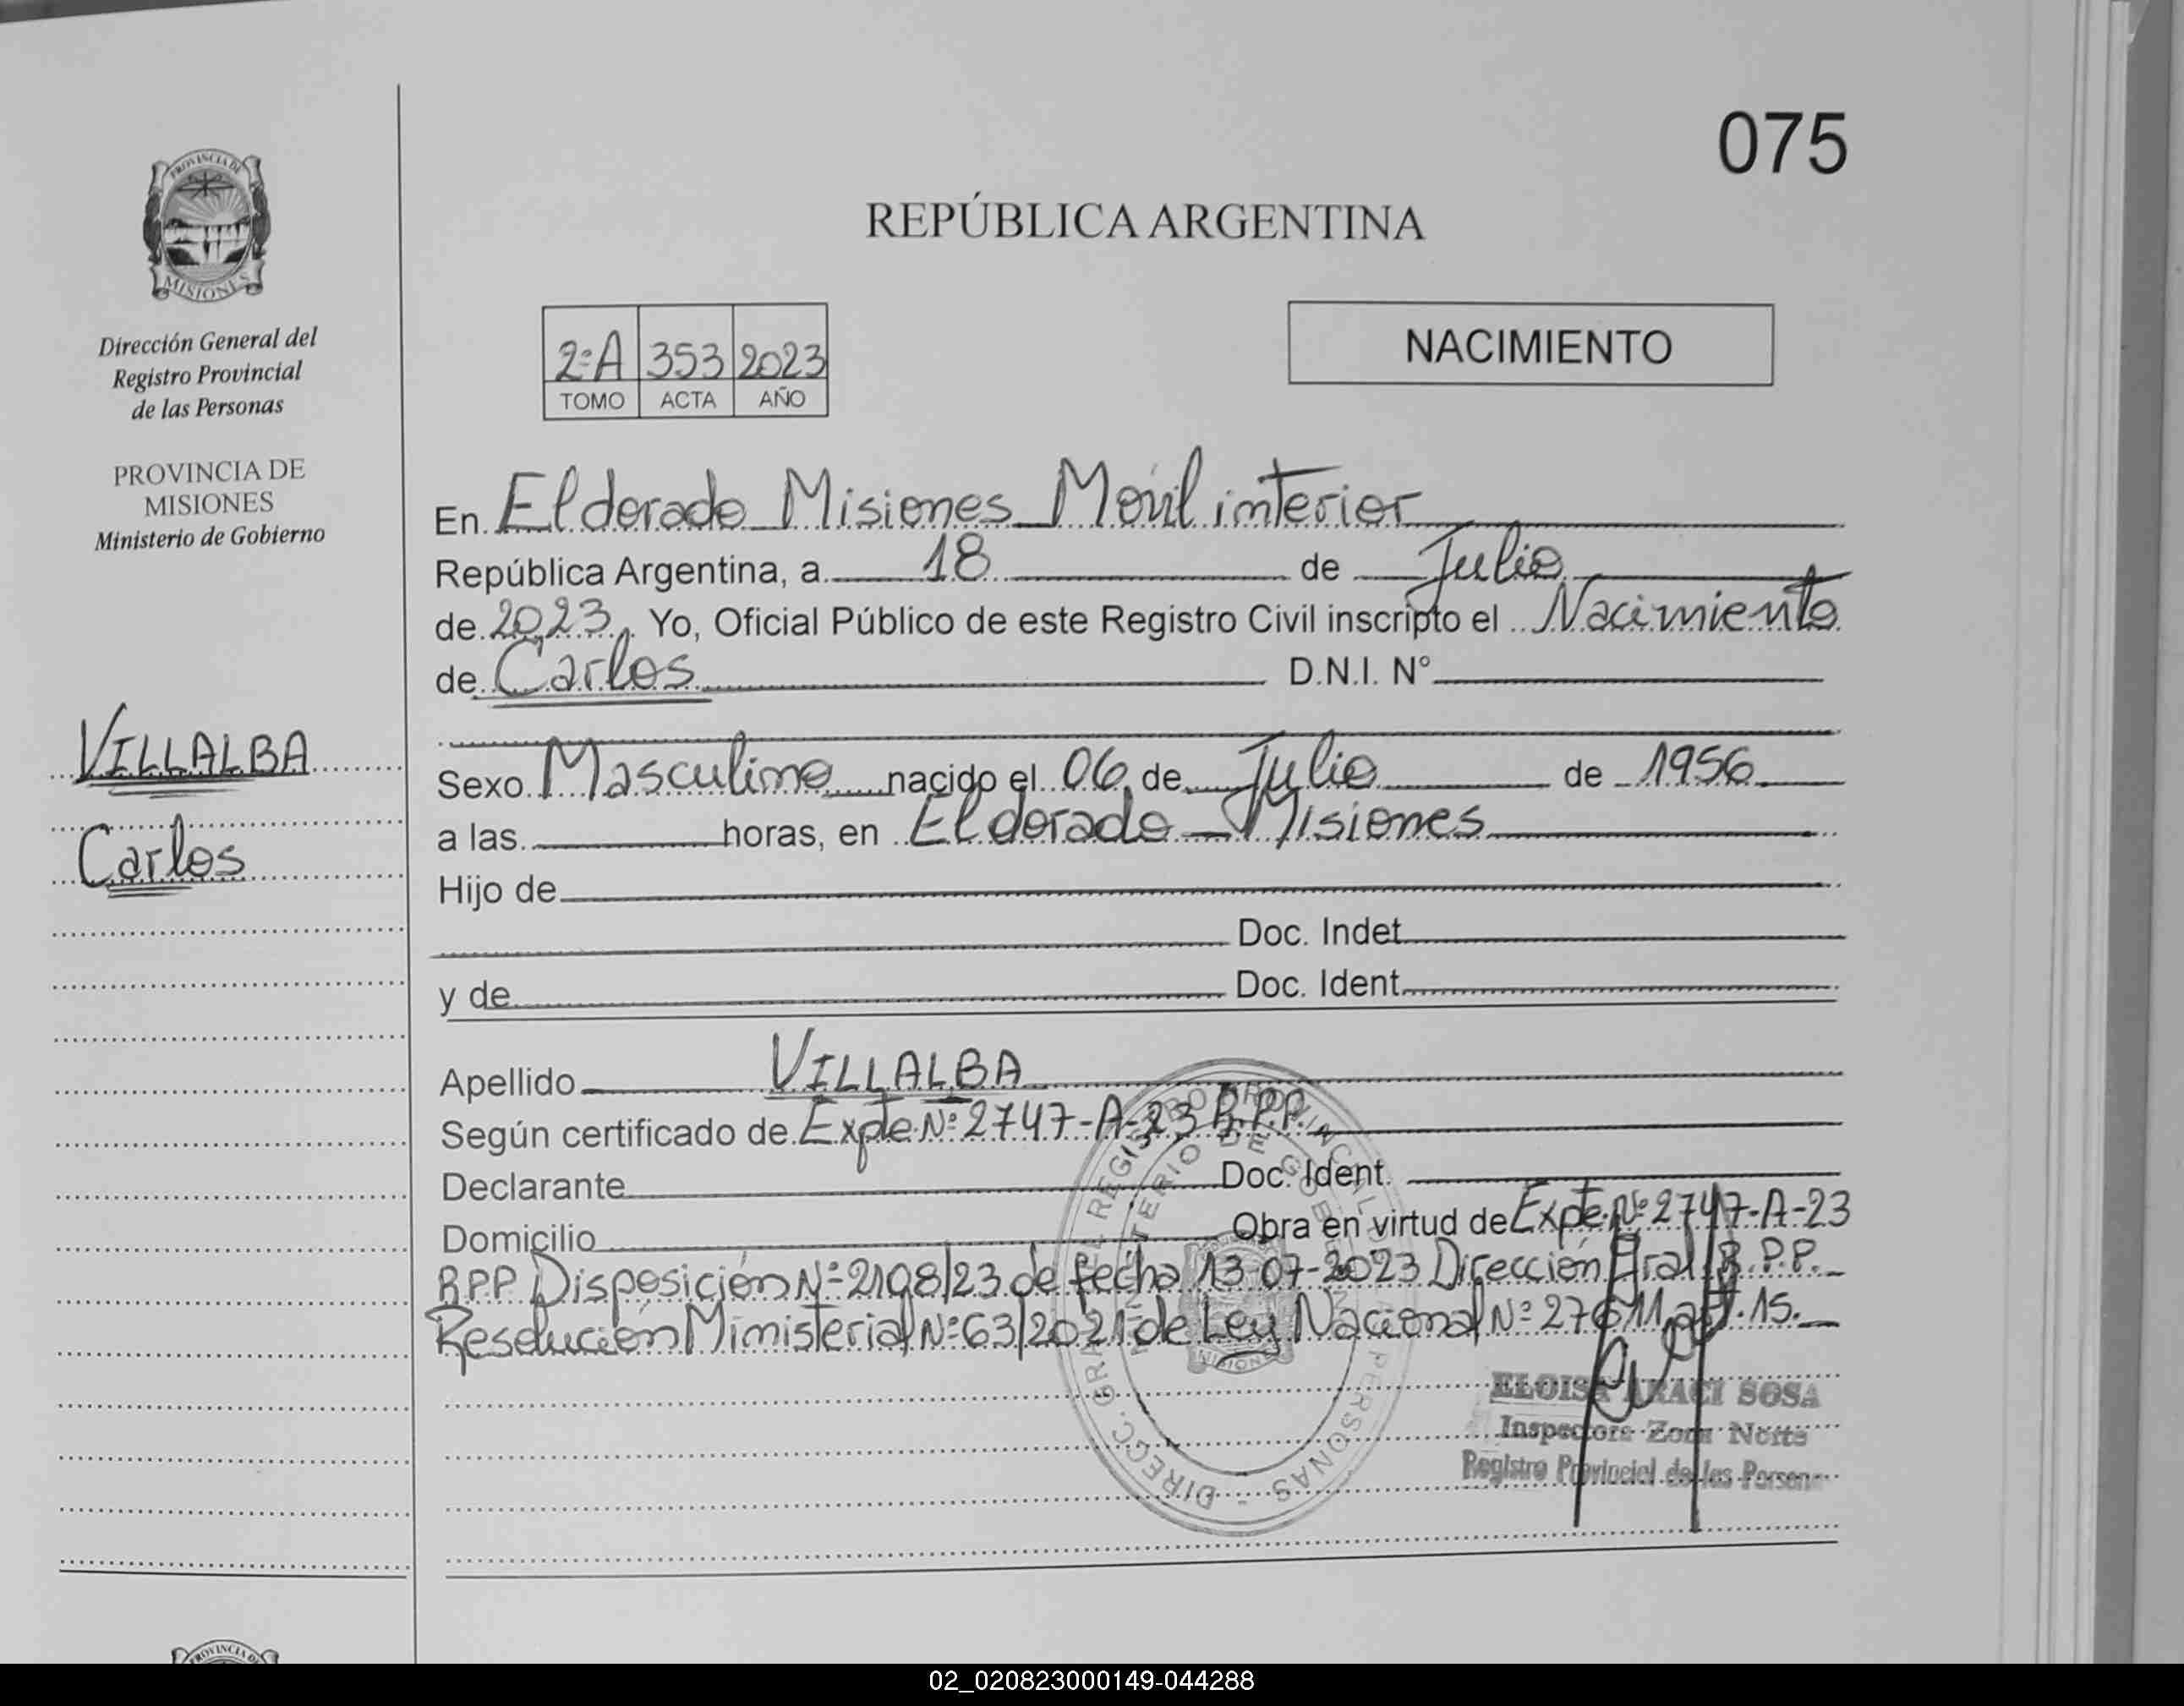 075
REPÚBLICA ARGENTINA
PROVINCIA DE
MISIONES
Dirección General del
Registro Provincial
de las Personas
PROVINCIA DE
MISIONES
Ministerio de Gobierno
VILLALBA
Carlos
2ºA 353 2023
TOMO ACTA AÑO
NACIMIENTO
En Eldorado Misiones Movil interior
República Argentina, a 18 de Julio
de 2023. Yo, Oficial Público de este Registro Civil inscripto el Nacimiento
de Carlos D.N.I. N°
Sexo Masculino nacido el 06 de Julio de 1956
a las horas, en Eldorado - Misiones
Hijo de
Doc. Indet
y de Doc. Ident
Apellido VILLALBA
Según certificado de Expte Nº 2747-A-23 R.P.P.
Declarante Doc. Ident.
Domicilio Obra en virtud de Expte Nº 2747-A-23
R.P.P. Disposición Nº 2198/23 de fecha 13-07-2023 Dirección Gral R.P.P.
Resolución Ministerial Nº 63/2021 de Ley Nacional Nº 27611 art. 15.
DIRECC. GRAL REGISTRO PROVINCIAL PERSONAS
MINISTERIO DE
MISIONES
ELOISA ARACI SOSA
Inspectora Zona Norte
Registro Provincial de las Person
PROVINCIA DE
02_020823000149-044288